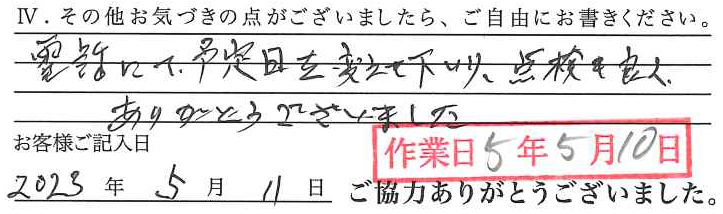 Ⅳ．その他お気づきの点がございましたら、ご自由にお書きください。
電話にて、予定日を変えて下さり、点検も良く、
ありがとうございました
お客様ご記入日
作業日5年5月10日
2023年5月11日 ご協力ありがとうございました。